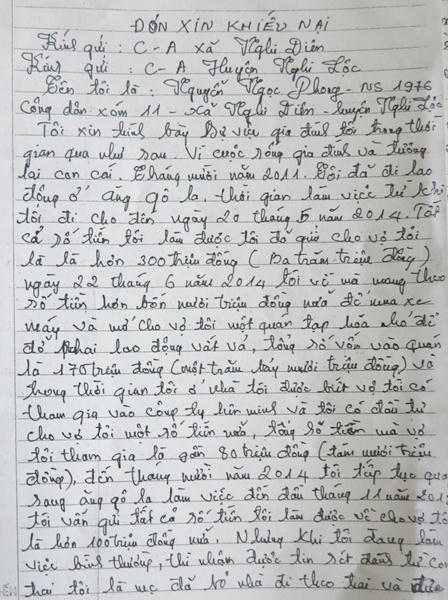 ĐƠN XIN KHIẾU NẠI
Kính gửi : C-A xã Nghi Diên
Kính gửi : C-A Huyện Nghi Lộc
Tên tôi là : Nguyễn Ngọc Phong - NS 1976
Công dân xóm 11 - xã Nghi Diên - huyện Nghi Lộc
Tôi xin trình bày sự việc gia đình tôi trong thời
gian qua như sau. Vì cuộc sống gia đình và tương
lại con cái. Tháng mười năm 2011. Tôi đã đi lao
động ở ăng gô la. thời gian làm việc từ khi
tôi đi cho đến ngày 20 tháng 5 năm 2014. Tất
cả số tiền tôi làm được tôi đã gửi cho vợ tôi
là là hơn 300 triệu đồng (Ba trăm triệu đồng)
ngày 22 tháng 6 năm 2014 tôi về mà mang theo
số tiền hơn bốn mười triệu đồng nữa để mua xe
máy và mở cho vợ tôi một quán tạp hóa nhỏ để
đỡ phải lao động vất vả, tổng số vốn vào quán
là 170 triệu đồng (một trăm bảy mươi triệu đồng) và
trong thời gian tôi ở nhà tôi được biết vợ tôi có
tham gia vào công ty liên minh và tôi có đầu tư
cho vợ tôi một số tiền nữa, tổng số tiền mà vợ
tôi tham gia là gần 80 triệu đồng (tám mười triệu
đồng), đến tháng mười năm 2014 tôi tiếp tục qua
sang ăng gô la làm việc đến đầu tháng 11 năm 201
tôi vẫn gửi tất cả số tiền tôi làm được về cho vợ tô
là hơn 100 triệu đồng nữa. Nhưng khi tôi đang làm
việc bình thường, thì nhận được tin sét đánh từ con
trai tôi là mẹ đã bỏ nhà đi theo trai và